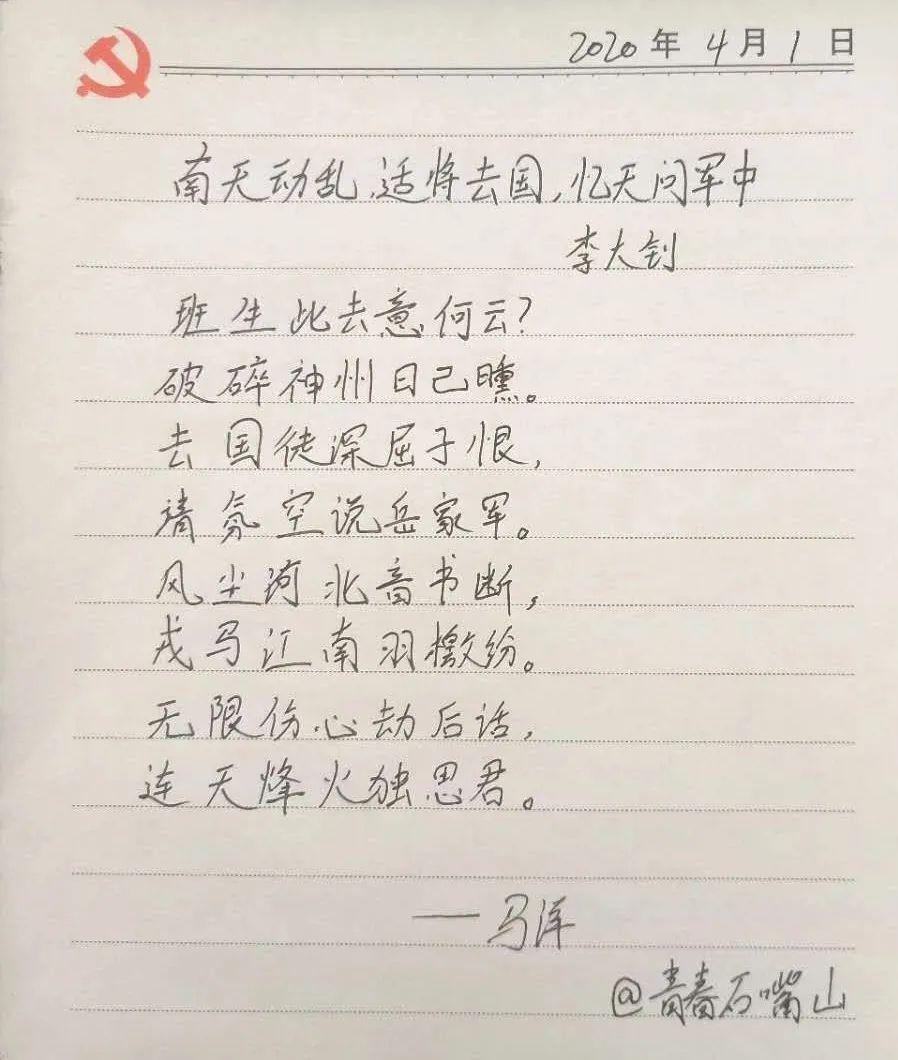 2020年4月1日
南天动乱,适将去国,忆天问军中
李大钊
班生此去意何云?
破碎神州日已曛。
去国徒深屈子恨,
靖氛空说岳家军。
风尘河北音书断,
戎马江南羽檄纷。
无限伤心劫后话,
连天烽火独思君。
——马洋
@青春石嘴山